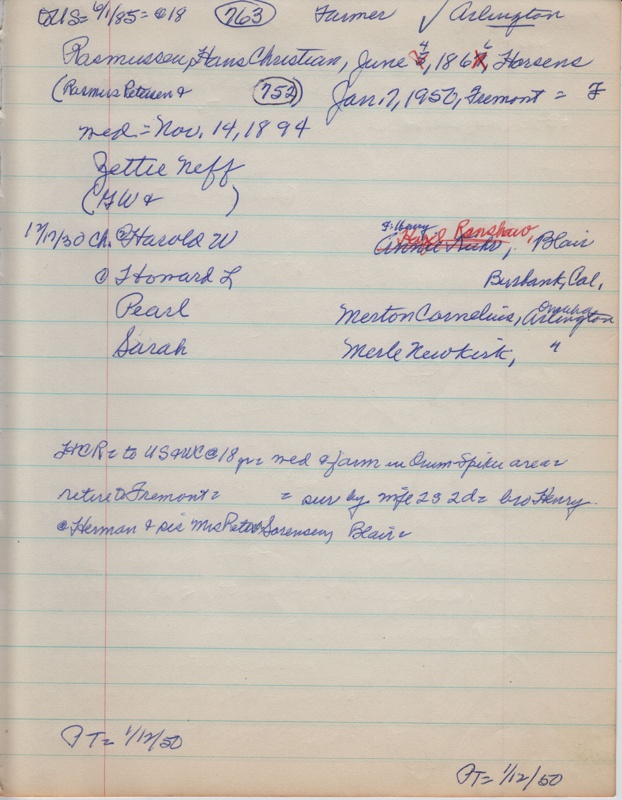 US= 6/1/85= @18 763 Farmer ✓ Arlington
Rasmussen, Hans Christian, June 4, 1866, Horsens
(Rasmus Petersen & 752) Jan. 7, 1950, Fremont = F
med = Nov. 14, 1894
Zettie Neff
(GW & )
12/17/30 Ch. @ Harold W Hazel Ranshaw, Blair
@ Howard L Burbank, Cal,
Pearl Merton Cornelius, Omaha Arlington
Sarah Merle Newkirk, "
HCR= to US @18 yr= med & farm in Orum-Spiker area=
retire to Fremont= = sur by wife 2s 2d= bro Henry
@ Herman & sis Mrs Peter Sorensen, Blair=
T= 1/12/50
T= 1/12/50